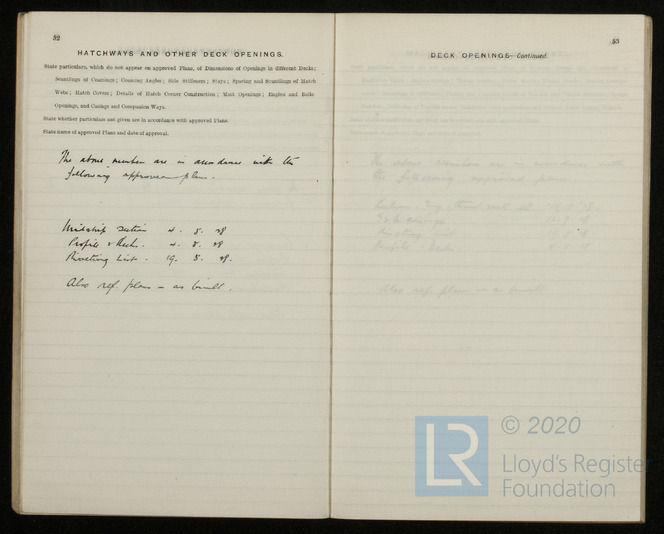 52
HATCHWAYS AND OTHER DECK OPENINGS.
State particulars, which do not appear on approved Plans, of Dimensions of Openings in different Decks;
Scantlings of Coamings; Coaming Angles; Side Stiffeners; Stays; Spacing and Scantlings of Hatch
Webs; Hatch Covers; Details of Hatch Corner Construction; Mast Openings; Engine and Boiler
Openings, and Casings and Companion Ways.
State whether particulars not given are in accordance with approved Plans.
State name of approved Plans and date of approval.
The above number are in accordance with the
following approved plans.
Midship Section 4. 5. 28
Profile & Decks. 4. 5. 28
Riveting List. 19. 5. 28.
Also ref. plans – as built.
53
DECK OPENINGS—Continued.
LR
© 2020
Lloyd's Register
Foundation